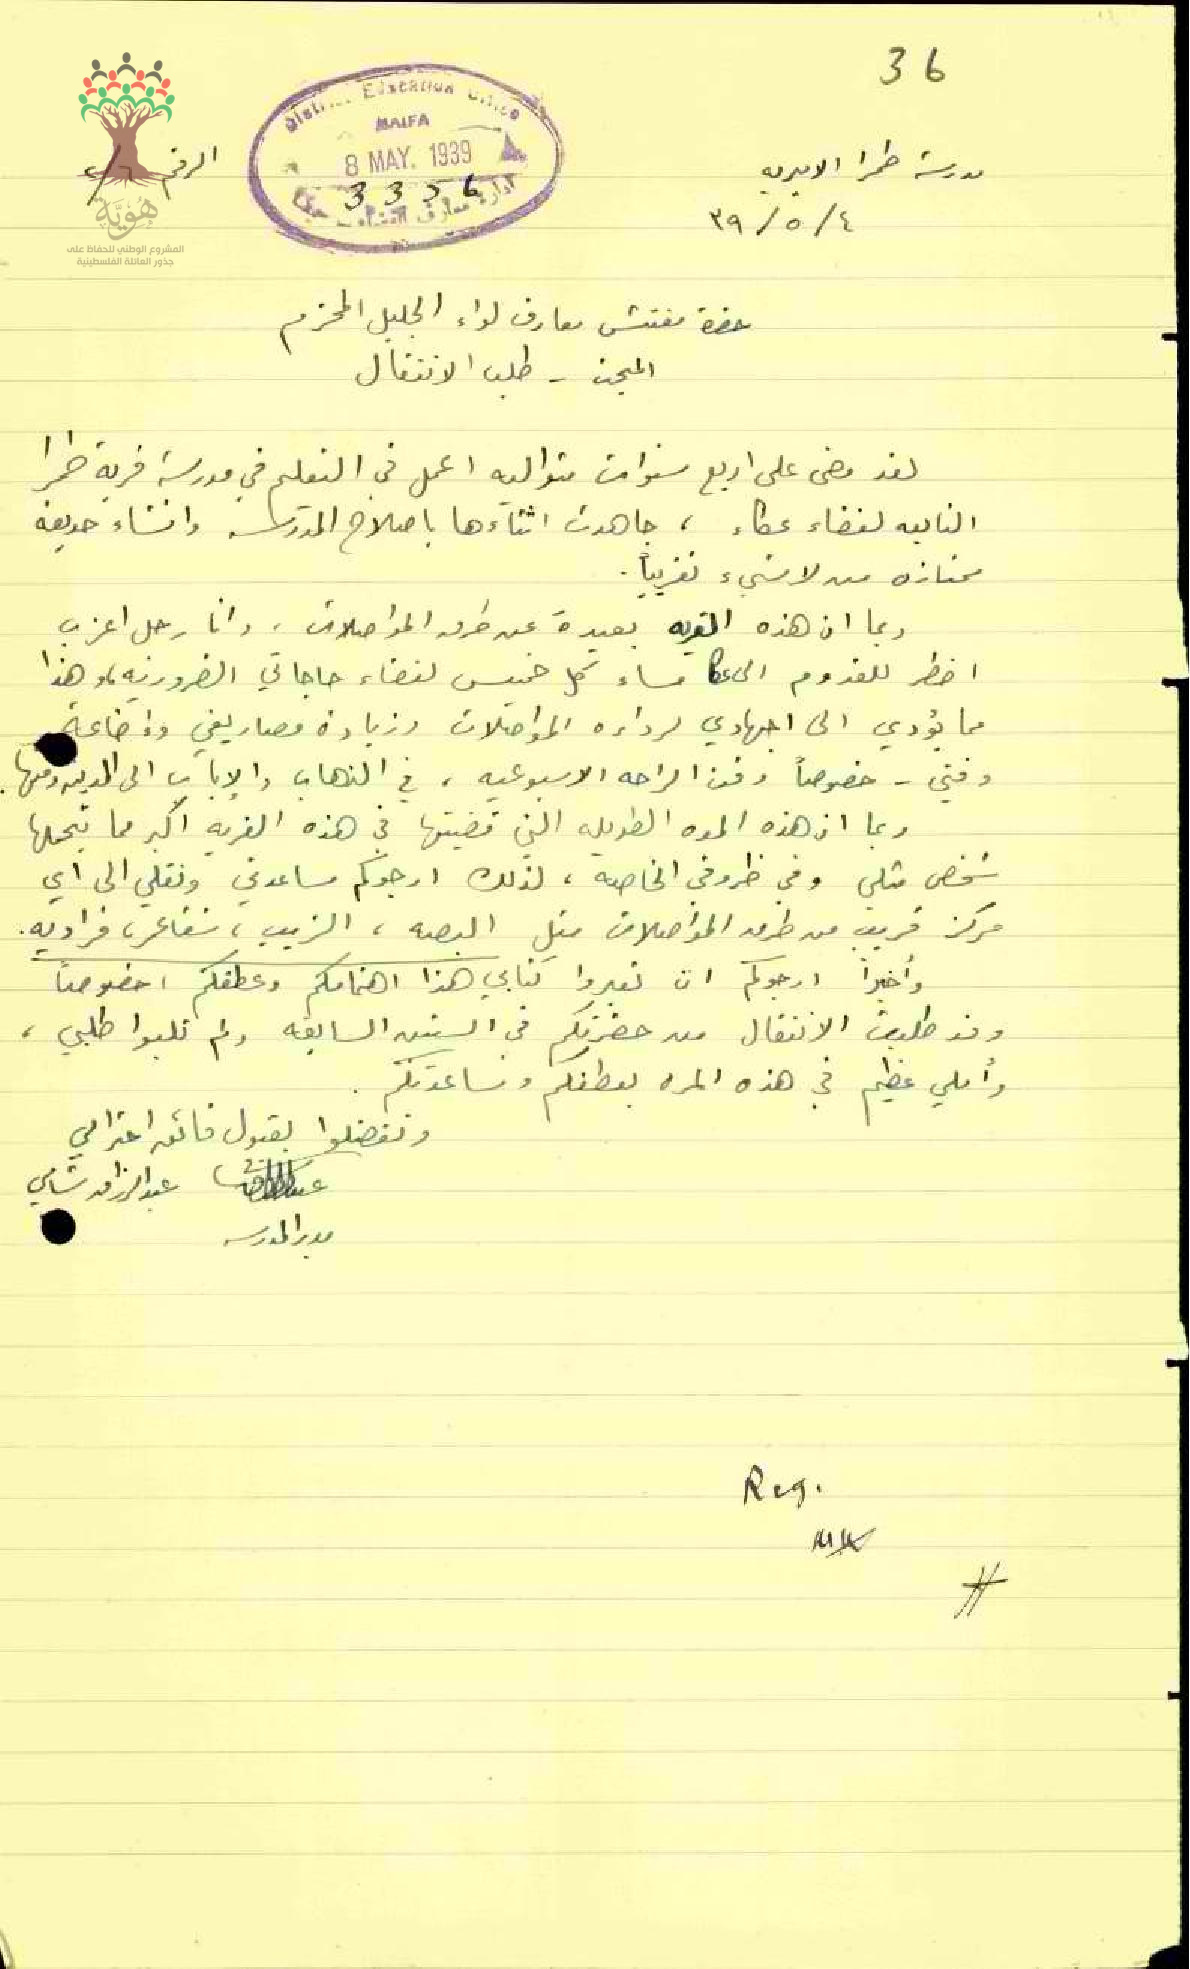 36
District Education Office
HAIFA
8 MAY. 1939
3356
ادارة معارف القضاء حيفا
الرقم
هُوِيَّة
المشروع الوطني للحفاظ على
جذور العائلة الفلسطينية
مدرسة طمرا الاميريه
٣٩/٥/٤
حضرة مفتش معارف لواء الجليل المحترم
المبحث - طلب الانتقال
لقد مضى على اربع سنوات متواليه اعمل في التعليم في مدرسة قرية طمرا
التابعه لقضاء عكاء ، جاهدت اثناءها باصلاح المدرسه وانشاء حديقة
ممتازه من لا شيء تقريباً .
وبما ان هذه القريه بعيدة عن طرق المواصلات ، وانا رجل اعزب
اضطر للقدوم الى عكا مساء كل خميس لقضاء حاجاتي الضروريه، وهذا
مما يؤدي الى اجهادي لرداءه المواصلات وزيادة مصاريفي واضاعة
وقتي - خصوصاً وقت الراحه الاسبوعيه ، في الذهاب والإياب الى المدينه ومنها .
وبما ان هذه المده الطويله التي قضيتها في هذه القريه اكبر مما يتحملها
شخص مثلي وفي ظروفي الخاصه ، لذلك ارجوكم مساعدتي ونقلي الى أي
مركز قريب من طرق المواصلات مثل البصه ، الزيب ، شفاعمر، فراديه .
وأخيراً ارجوكم ان تعيروا كتابي هذا اهتمامكم وعطفكم ، خصوصاً
وقد طلبت الانتقال من حضرتكم في السنين السابقه ولم تلبوا طلبي ،
وأملي عظيم في هذه المره بعطفكم ومساعدتكم .
وتفضلوا بقبول فائق احترامي
عبدالرزاق شامي
مدير المدرسه
Reg.